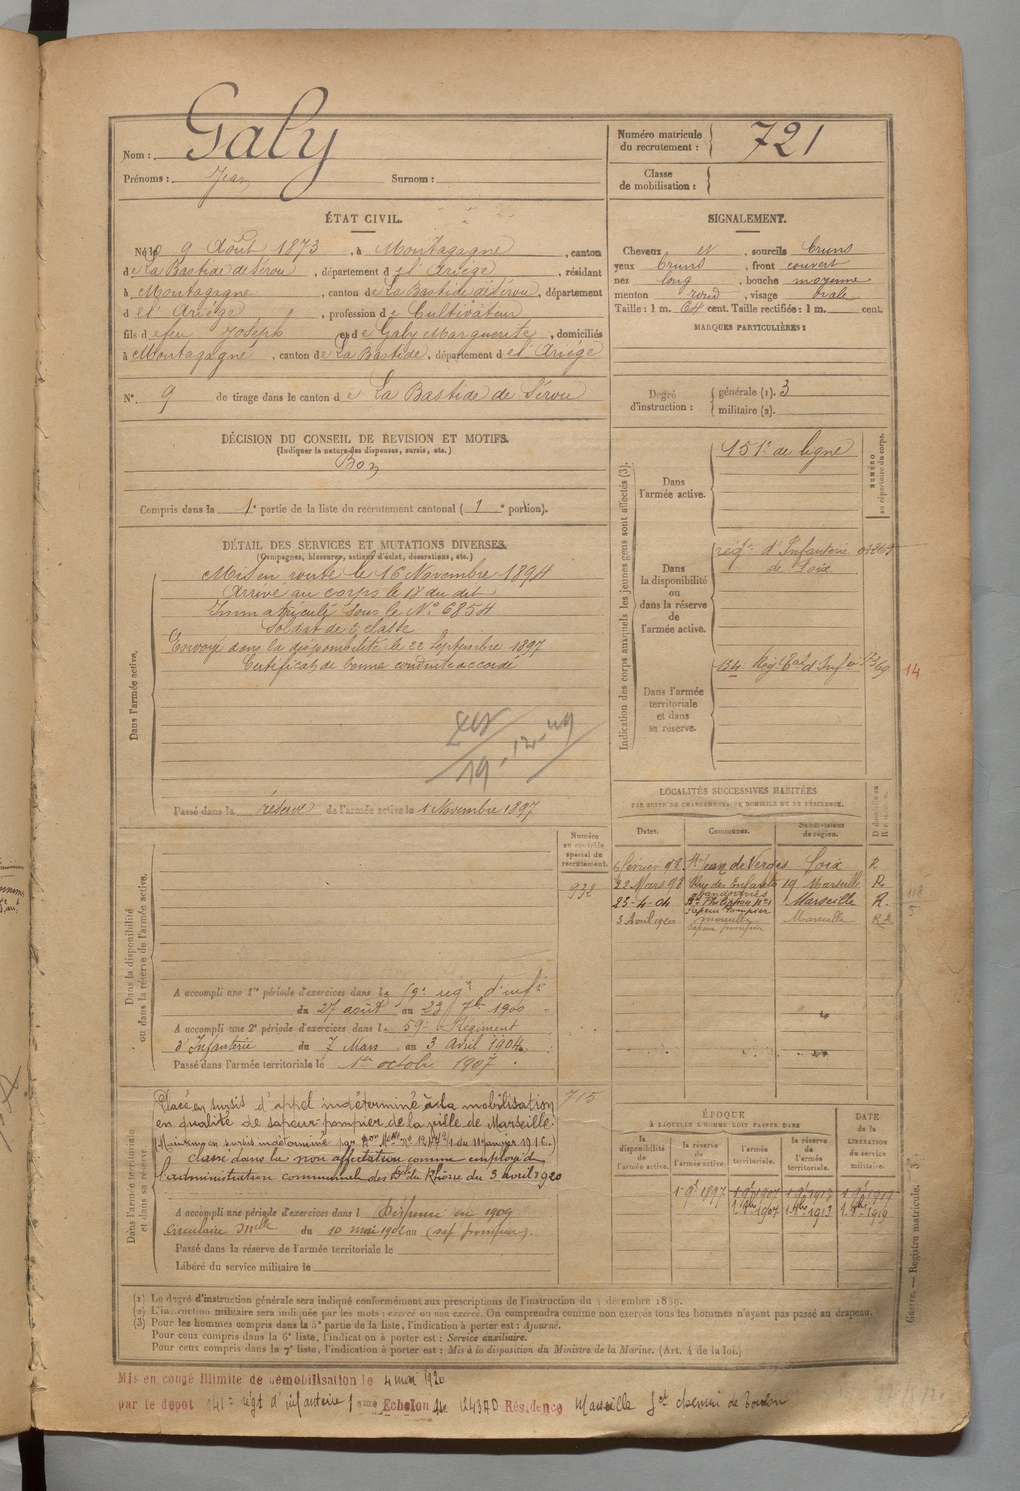 Nom : Galy
Prénoms : Jean Surnom :
Numéro matricule du recrutement : 721
Classe de mobilisation :
ÉTAT CIVIL.
Né le 9 Août 1873, à Montagagne, canton
de La Bastide de Sérou, département de l'Ariège, résidant
à Montagagne, canton de La Bastide de Sérou, département
de l'Ariège, profession de Cultivateur
fils de feu Joseph et de Galy Marguerite, domiciliés
à Montagagne, canton de La Bastide, département de l'Ariège
N°. 9 de tirage dans le canton de La Bastide de Sérou
SIGNALEMENT.
Cheveux et, sourcils bruns
yeux bruns, front couvert
nez long, bouche moyenne
menton rond, visage ovale
Taille : 1 m. 64 cent. Taille rectifiée : 1 m. cent.
MARQUES PARTICULIÈRES :
Degré d'instruction : générale (1). 3
militaire (2).
DÉCISION DU CONSEIL DE REVISION ET MOTIFS.
(Indiquer la nature des dispenses, sursis, etc.)
Bon
Compris dans la 1e partie de la liste du recrutement cantonal ( 1e portion).
DÉTAIL DES SERVICES ET MUTATIONS DIVERSES.
(Campagnes, blessures, actions d'éclat, décorations, etc.)
Dans l'armée active.
Mis en route le 16 Novembre 1894
Arrivé au corps le 17 du dit
Immatriculé sous le N° 6854
Soldat de 2e classe
Envoyé dans la disponibilité le 22 Septembre 1897
Certificat de bonne conduite accordé
Passé dans la réserve de l'armée active le 1 Novembre 1897
Indication des corps auxquels les jeunes gens sont affectés (3).
NUMÉRO au répertoire du corps.
Dans l'armée active.
151e de ligne
Dans la disponibilité ou dans la réserve de l'armée active.
régt d'Infanterie
de Foix
Dans l'armée territoriale et dans sa réserve.
134 Régt tal d'Infie
14
LOCALITÉS SUCCESSIVES HABITÉES
PAR SUITE DE CHANGEMENTS DE DOMICILE OU DE RÉSIDENCE.
Dates. Communes. Subdivisions de région.
6 février 98 St Jean de Verges Foix R
22 Mars 98 Rue des Enfants abandonnés 19 Marseille R
25-4-04 Marseille R.
sapeur pompier
3 Avril 1920 Marseille
sapeur pompier
Numéro au contrôle spécial du recrutement.
938
Dans la disponibilité ou dans la réserve de l'armée active.
A accompli une 1re période d'exercices dans le régt d'infie
du 27 août au 23 7bre 1900
A accompli une 2e période d'exercices dans le 59e Régiment
d'Infanterie du 7 Mars au 3 Avril 1904.
Passé dans l'armée territoriale le 1er octobre 1907
715
Dans l'armée territoriale et dans sa réserve.
Placé en sursis d'appel indéterminé à la mobilisation
en qualité de sapeur-pompier de la ville de Marseille.
(Maintenu en sursis indéterminé par du 11 janvier 1916.)
classé dans la non affectation comme employé de
l'administration communale des B. du Rhône du 3 avril 1920
A accompli une période d'exercices dans l Dispensé en 1909
circulaire Mlle du 10 mai 1901 au (sap. pompier).
Passé dans la réserve de l'armée territoriale le
Libéré du service militaire le
ÉPOQUE
A LAQUELLE L'HOMME DOIT PASSER DANS
DATE de la LIBÉRATION du service militaire.
la disponibilité de l'armée active. la réserve de l'armée active. l'armée territoriale. la réserve de l'armée territoriale.
(1) Le degré d'instruction générale sera indiqué conformément aux prescriptions de l'instruction du 4 décembre 1889.
(2) L'instruction militaire sera indiquée par les mots : exercé ou non exercé. On comprendra comme non exercés tous les hommes n'ayant pas passé au drapeau.
(3) Pour les hommes compris dans la 5e partie de la liste, l'indication à porter est : Ajourné.
Pour ceux compris dans la 6e liste, l'indication à porter est : Service auxiliaire.
Pour ceux compris dans la 7e liste, l'indication à porter est : Mis à la disposition du Ministre de la Marine. (Art. 4 de la loi.)
Guerre. — Registre matricule. 3
Mis en congé illimité de démobilisation le 4 mai 1920
par le dépôt 141e régt d'infanterie Echelon Résidence Marseille chemin de Toulon